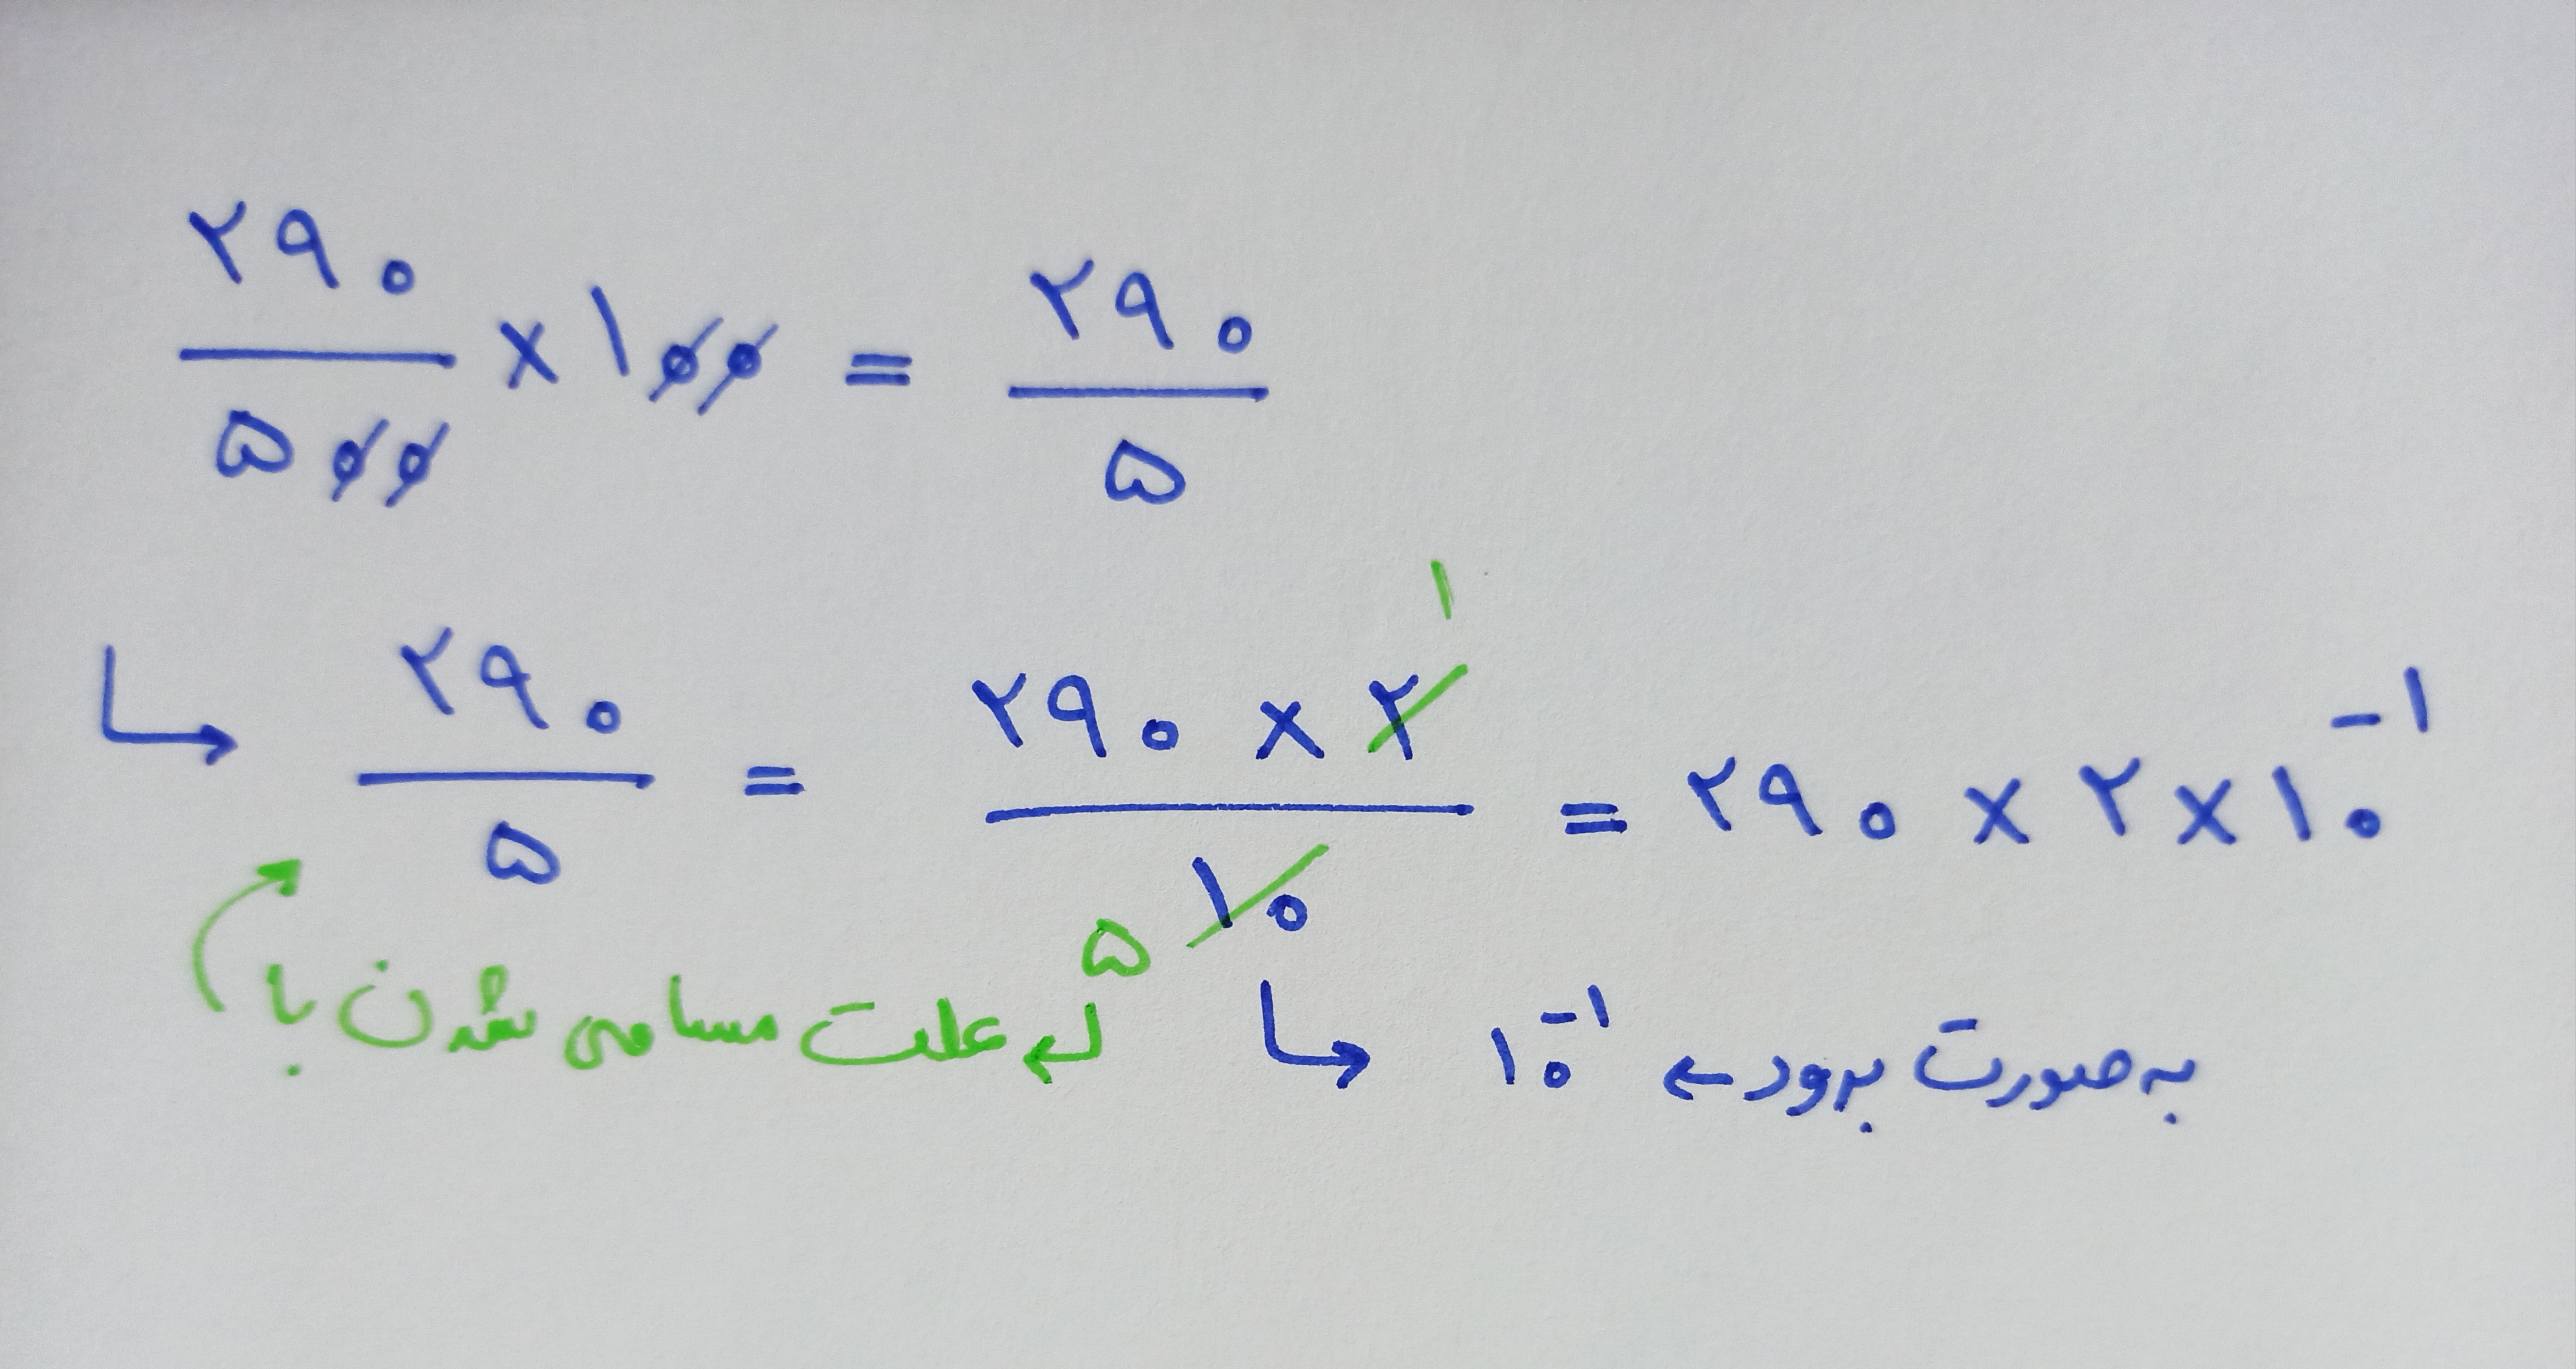 ۲۹۰/۵۰۰ × ۱۰۰ = ۲۹۰/۵
↳ ۲۹۰/۵ = ۲۹۰ × ۲/۱۰ = ۲۹۰ × ۲ × ۱۰⁻¹
۱
۵
علت مساوی شدن با
به صورت برود ← ۱۰⁻¹